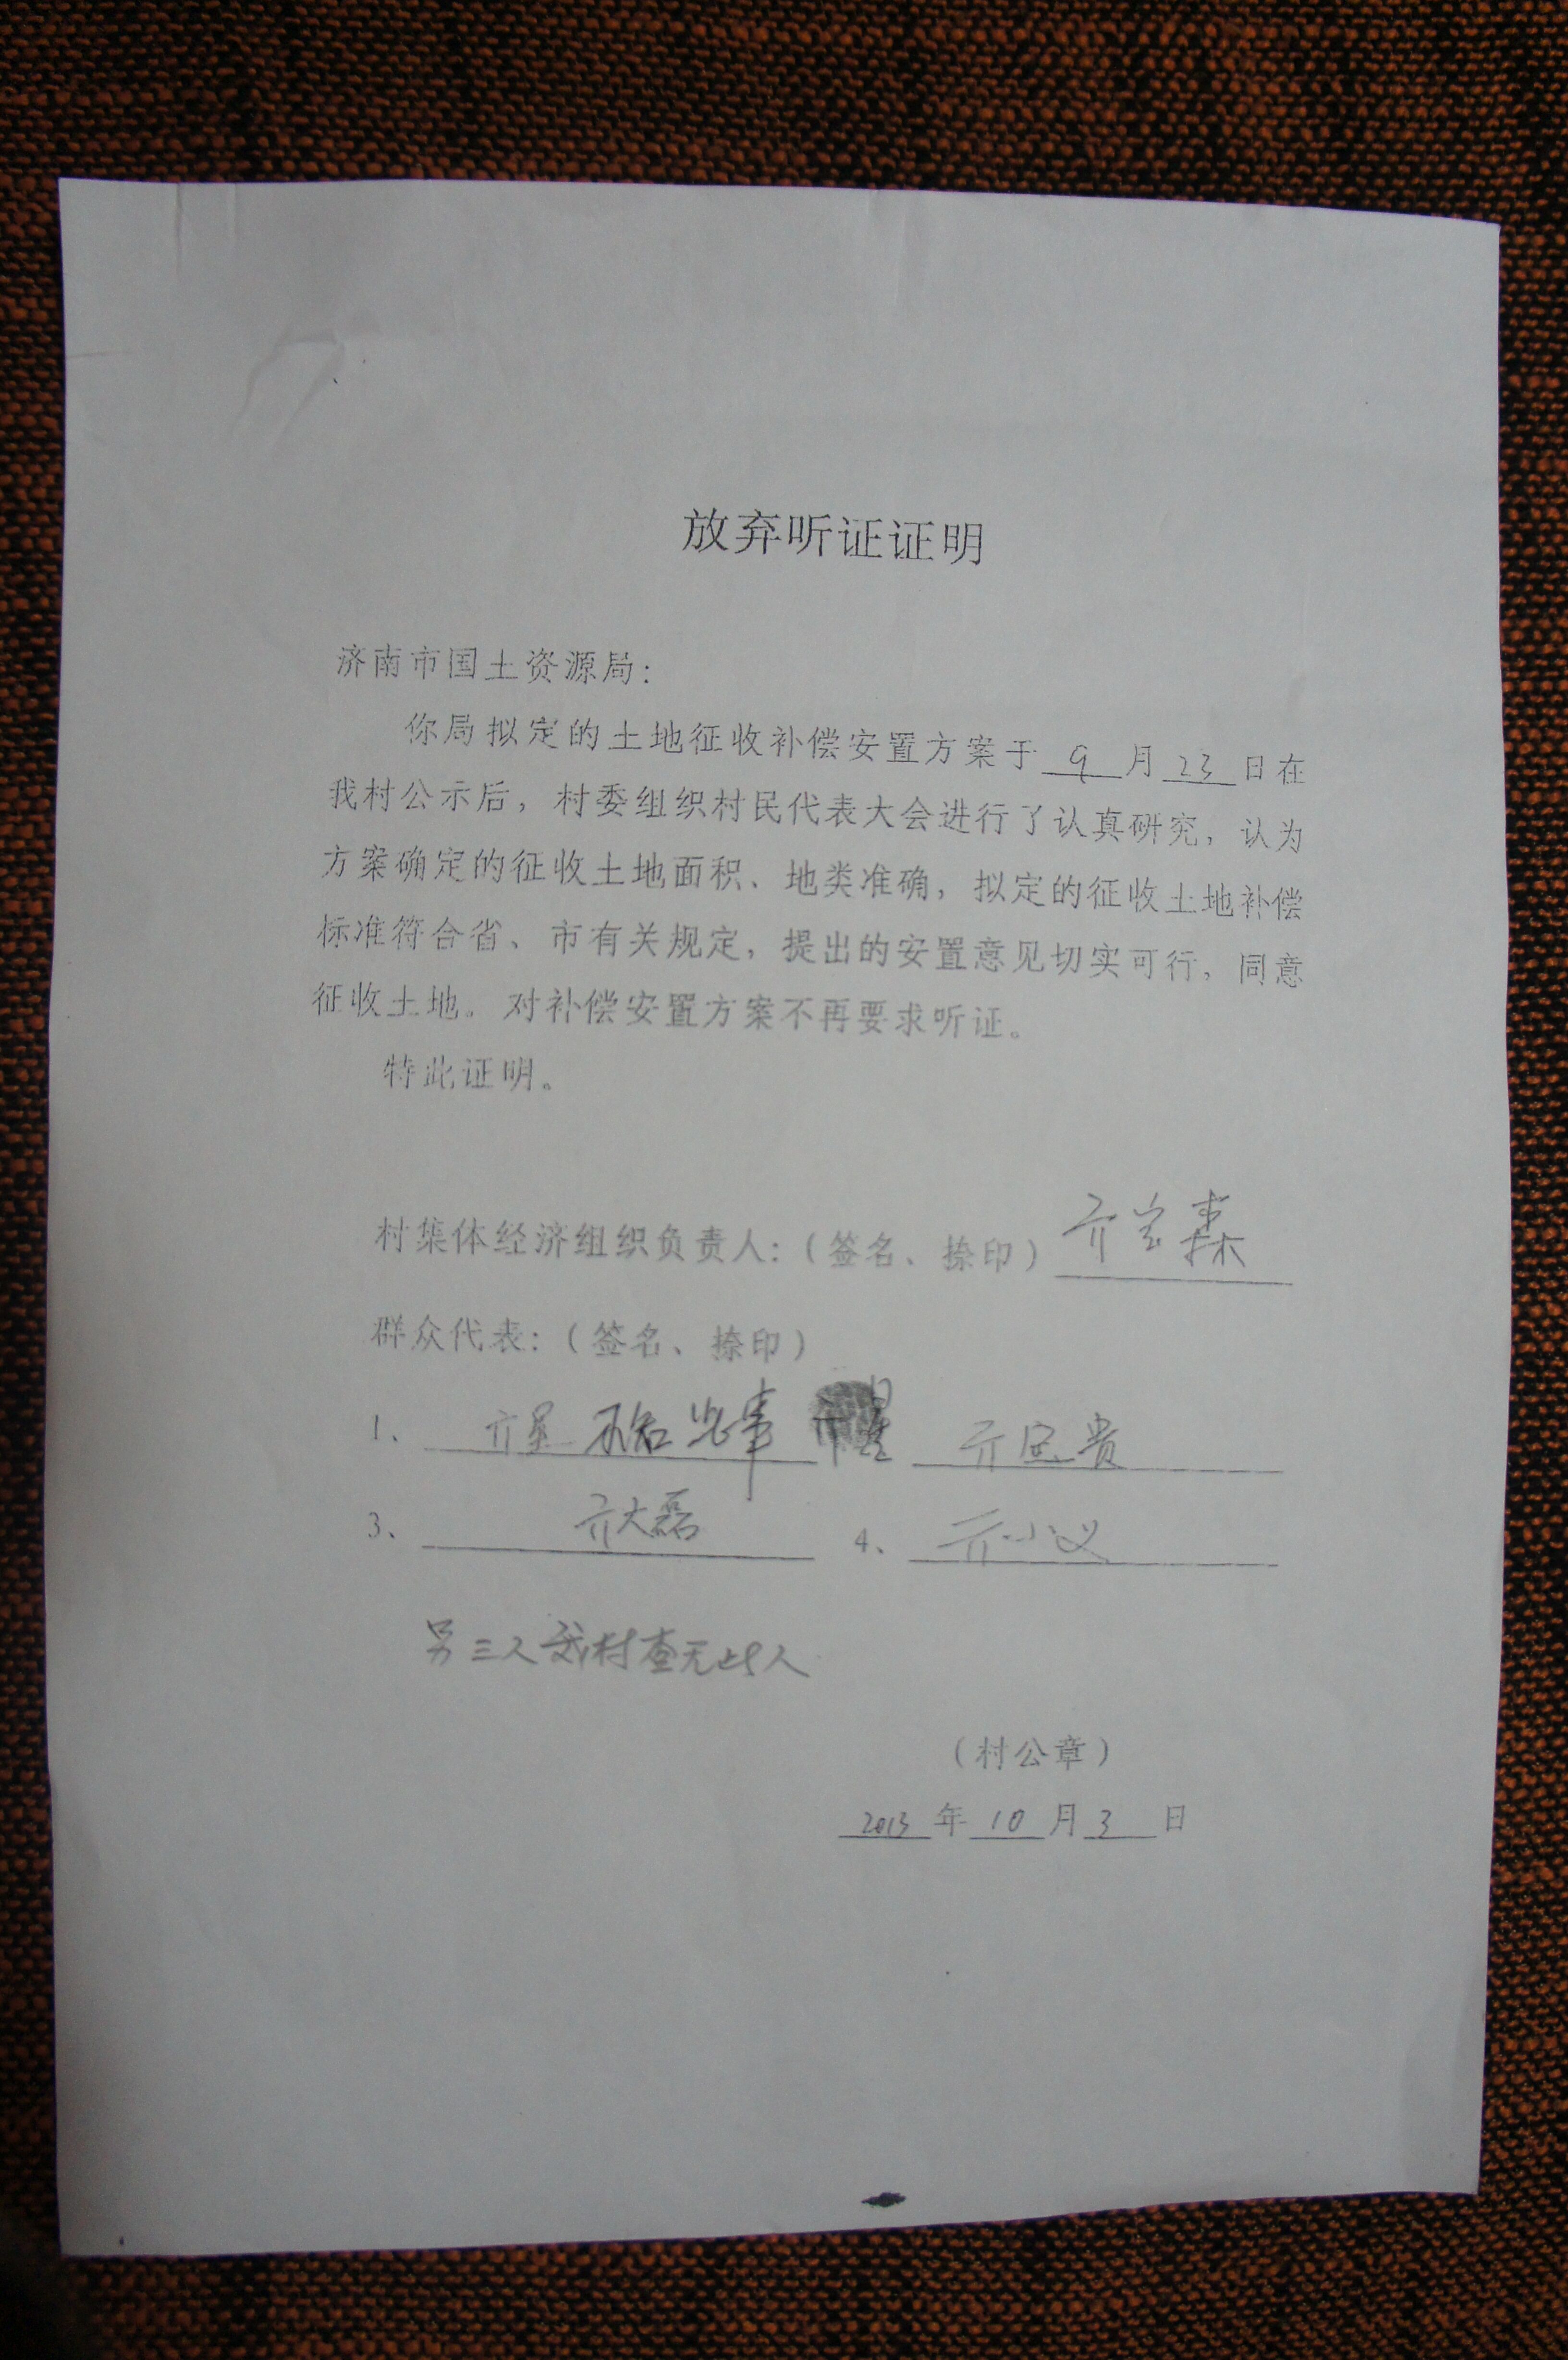 放弃听证证明
济南市国土资源局：
你局拟定的土地征收补偿安置方案于 9 月 23 日在
我村公示后，村委组织村民代表大会进行了认真研究，认为
方案确定的征收土地面积、地类准确，拟定的征收土地补偿
标准符合省、市有关规定，提出的安置意见切实可行，同意
征收土地。对补偿安置方案不再要求听证。
特此证明。
村集体经济组织负责人：（签名、捺印） 亓宝森
群众代表：（签名、捺印）
1、 亓星 不知此事 亓星 亓宝贵
3、 亓大磊 4、 亓小义
另三人我村查无此人
（村公章）
2013 年 10 月 3 日